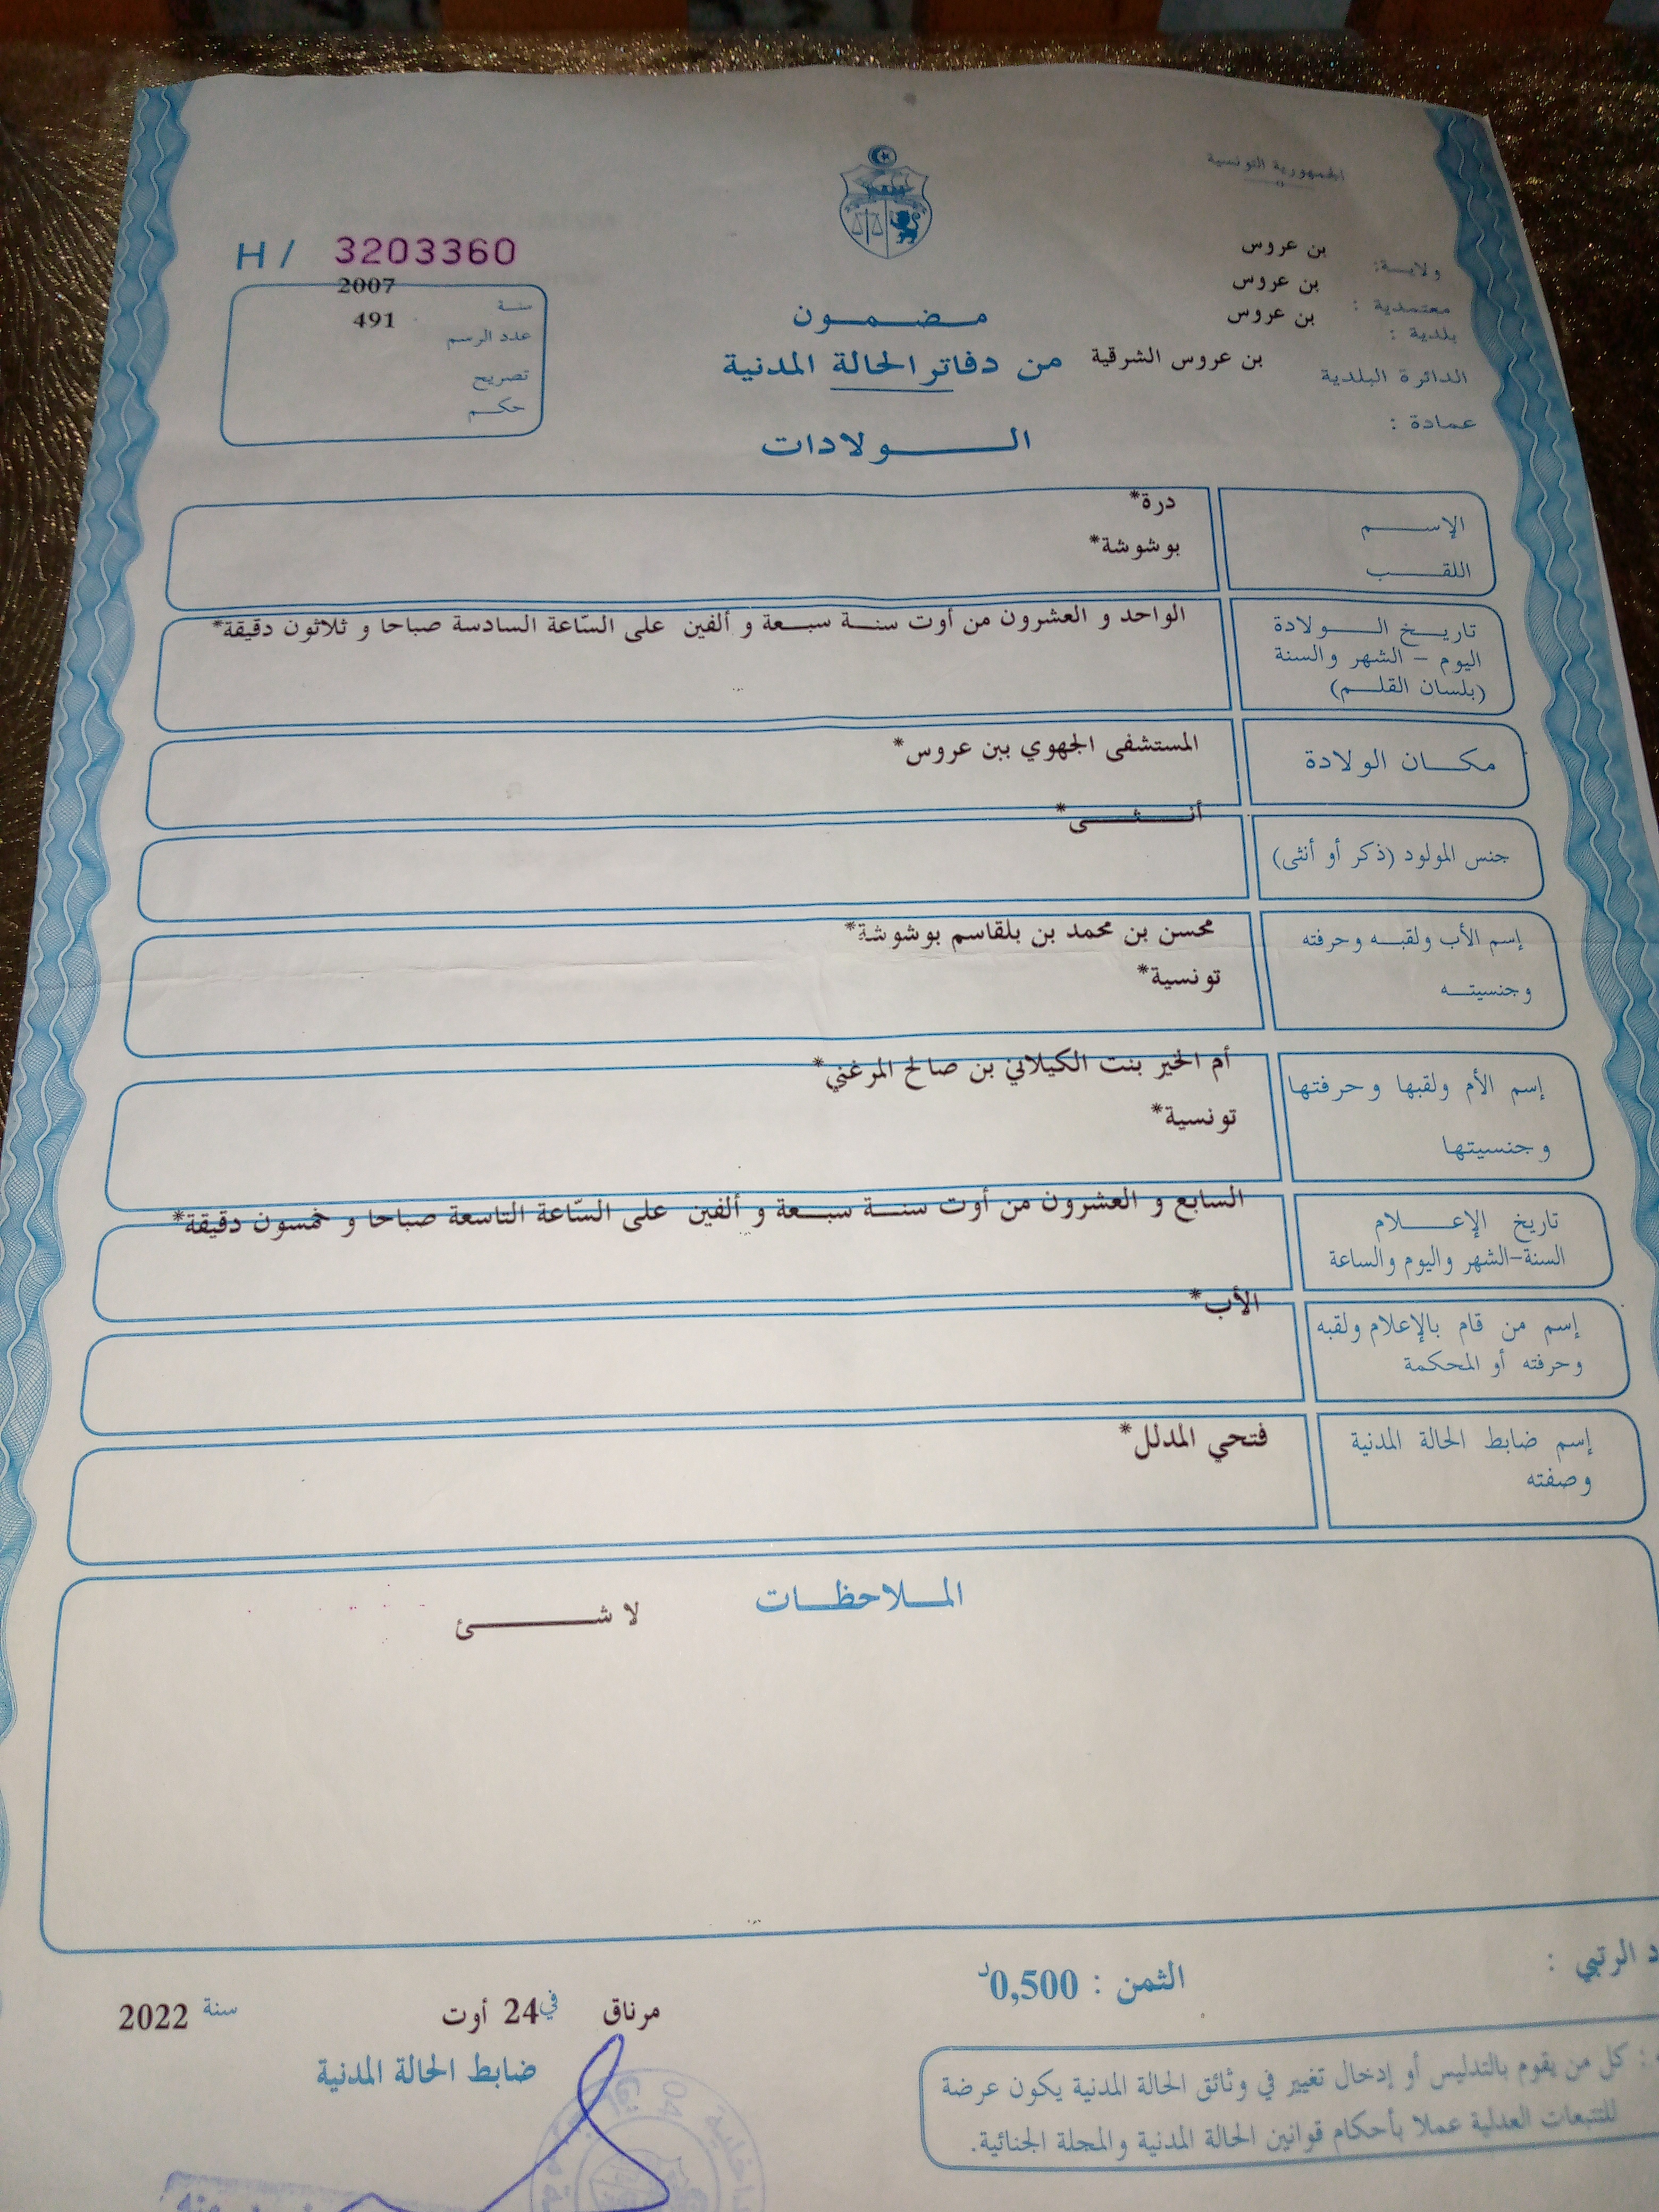 الجمهورية التونسية
ولاية: بن عروس
معتمدية : بن عروس
بلدية : بن عروس
الدائرة البلدية بن عروس الشرقية
عمادة :
H / 3203360
سنة 2007
عدد الرسم 491
تصريح
حكم
مضمون
من دفاتر الحالة المدنية
الولادات
الإسم درة*
اللقب بوشوشة*
تاريخ الولادة
اليوم - الشهر والسنة
(بلسان القلم)
الواحد و العشرون من أوت سنة سبعة و ألفين على السّاعة السادسة صباحا و ثلاثون دقيقة*
مكان الولادة المستشفى الجهوي ببن عروس*
جنس المولود (ذكر أو أنثى) أنثى*
إسم الأب ولقبه وحرفته محسن بن محمد بن بلقاسم بوشوشة*
وجنسيته تونسية*
إسم الأم ولقبها وحرفتها أم الخير بنت الكيلاني بن صالح المرغني*
وجنسيتها تونسية*
تاريخ الإعلام
السنة-الشهر واليوم والساعة
السابع و العشرون من أوت سنة سبعة و ألفين على السّاعة التاسعة صباحا و خمسون دقيقة*
إسم من قام بالإعلام ولقبه
وحرفته أو المحكمة
الأب*
إسم ضابط الحالة المدنية
وصفته
فتحي المدلل*
الملاحظات
لا شئ
الرتبي :
الثمن : 0,500د
مرناق في 24 أوت سنة 2022
ضابط الحالة المدنية
: كل من يقوم بالتدليس أو إدخال تغيير في وثائق الحالة المدنية يكون عرضة
للتتبعات العدلية عملا بأحكام قوانين الحالة المدنية والمجلة الجنائية.